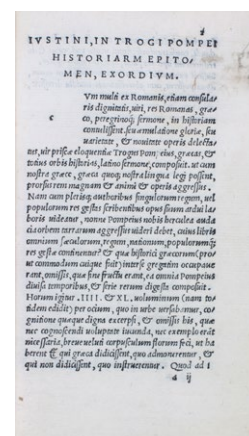 2
IVSTINI, IN TROGI POMPEI
HISTORIARM EPITO-
MEN, EXORDIVM.
c
Vm multi ex Romanis, etiam consula-
ris dignitatis, uiri, res Romanas, græ-
co, peregrinoq; sermone, in historiam
contulissent, seu æmulatione gloriæ, seu
uarietate, & nouitate operis delecta-
tus, uir priscæ eloquentiæ Trogus Pompeius, græcas, &
totius orbis historias, latino sermone, composuit. ut cum
nostra græce, græca quoq; nostra lingua legi possent,
prorsus rem magnam & animi & operis aggressus.
Nam cum pleriq; authoribus singulorum regum, uel
populorum res gestas scribentibus opus suum ardui la-
boris uideatur, nonne Pompeius nobis herculea auda-
cia orbem terrarum aggressus uideri debet, cuius libris
omnium sæculorum, regum, nationum, populorumq;
res gestæ continentur? & quæ historici græcorum, pro
ut commodum cuique fuit, inter se gregatim occupaue
rant, omissis, quæ sine fructu erant, ea omnia Pompeius
diuisa temporibus, & serie rerum digesta composuit.
Horum igitur .IIII. & XL. uoluminum (nam to-
tidem edidit) per ocium, quo in urbe uersabamur, co-
gnitione quæque digna excerpsi, & omissis his, quæ
nec cognoscendi uoluptate iucunda, nec exemplo erāt
necessaria, breue ueluti corpusculum florum feci, ut ha
berent & qui græca didicissent, quo admonerentur, &
qui non didicissent, quo instruerentur. Quod ad t
a ij